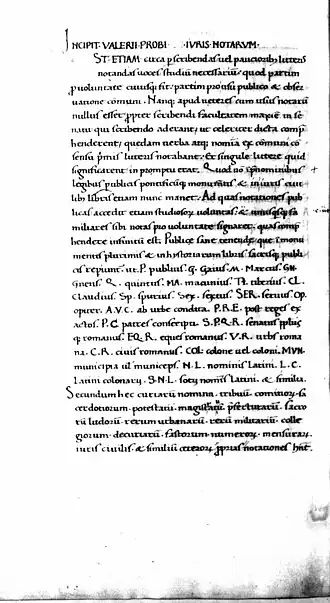 INCIPIT VALERII PROBI IVRIS NOTARVM.
ST ETIAM circa pscribendas uel paucioribus litteris
notandas uoces studiũ necessariũ. quod partim
p uoluntate cuiusq; fit. partim pro usu publico & obser
uatione comuni. Nanq; apud ueteres cum usus notarũ
nullus esset ppter scribendi facultatem maxie in se
natu qui scribendo aderant. ut celeriter dicta comp
henderent. quedam uerba atq; noĩa ex comuni co
sensu pmis litteris notabant. Et singule littere quid
significarent in promptu erat. Quod in pnominibus
legibus publicis pontificũq; monumtis & in iuris ciui
lib; libris etiam nunc manet. Ad quas notationes pub
licas accedit etiam studiosoꝝ uoluntas. & unusqsq; fa
miliares sibi notas pro uoluntate signaret. quas comp
hendere infinitũ est. Publice sane tenende que in monu
mentis plurimis & in historiarum libris sacrisq; publi
cis repiunt. ut. P. publius. G. Gaius. M. Marcus. GN.
Gneus. Q. quintus. MA. macunius. TI. tiberius. CL.
Claudius. Sp. spurius. Sex. sextus. SER. seruius. Op.
opiter. A.V.C. ab urbe condita. P.R.E. post reges ex
actos. P.C. patres conscripti. S.P.Q.R. senatus pplus
q; romanus. EQ.R. eques romanus. V.R. urbs roma
na. C.R. ciuis romanus. COL. colone uel coloni. MVN.
municipia uel municeps. N.L. nominis latini. L.C.
Latini colonarij. S.N.L. socij nomis latini. & similia.
Secundum hec curiarũ nomina. tribuũ. comitioꝝ. sa
cerdotiorum. potestatũ. magistratuũ. pfecturarũ. sacro
rũ ludorũ. rerum urbanarũ. rerũ militariũ. colle
giorum. decuriarũ. fastorum. numeroꝝ. mensuraꝝ.
iuris ciuilis. & similiũ ceteroꝝ pprias notationes hnt.